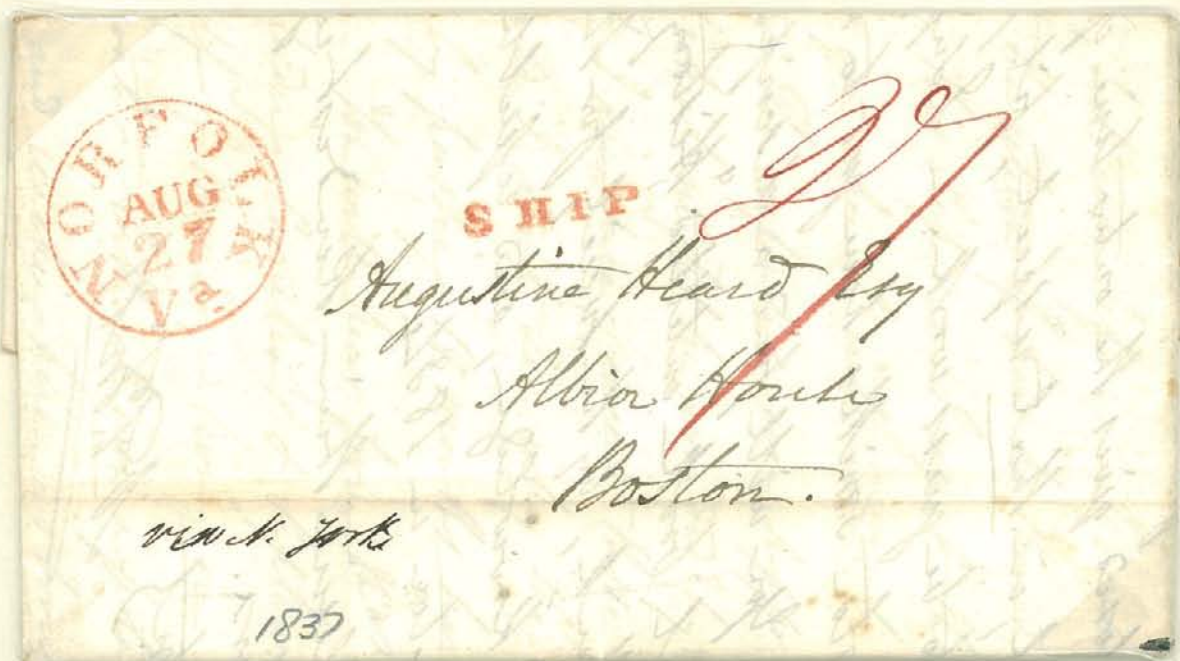 NORFOLK
AUG
27
Va
SHIP
27
Augustine Heard Esq
Albion House
Boston.
via N. York
1837